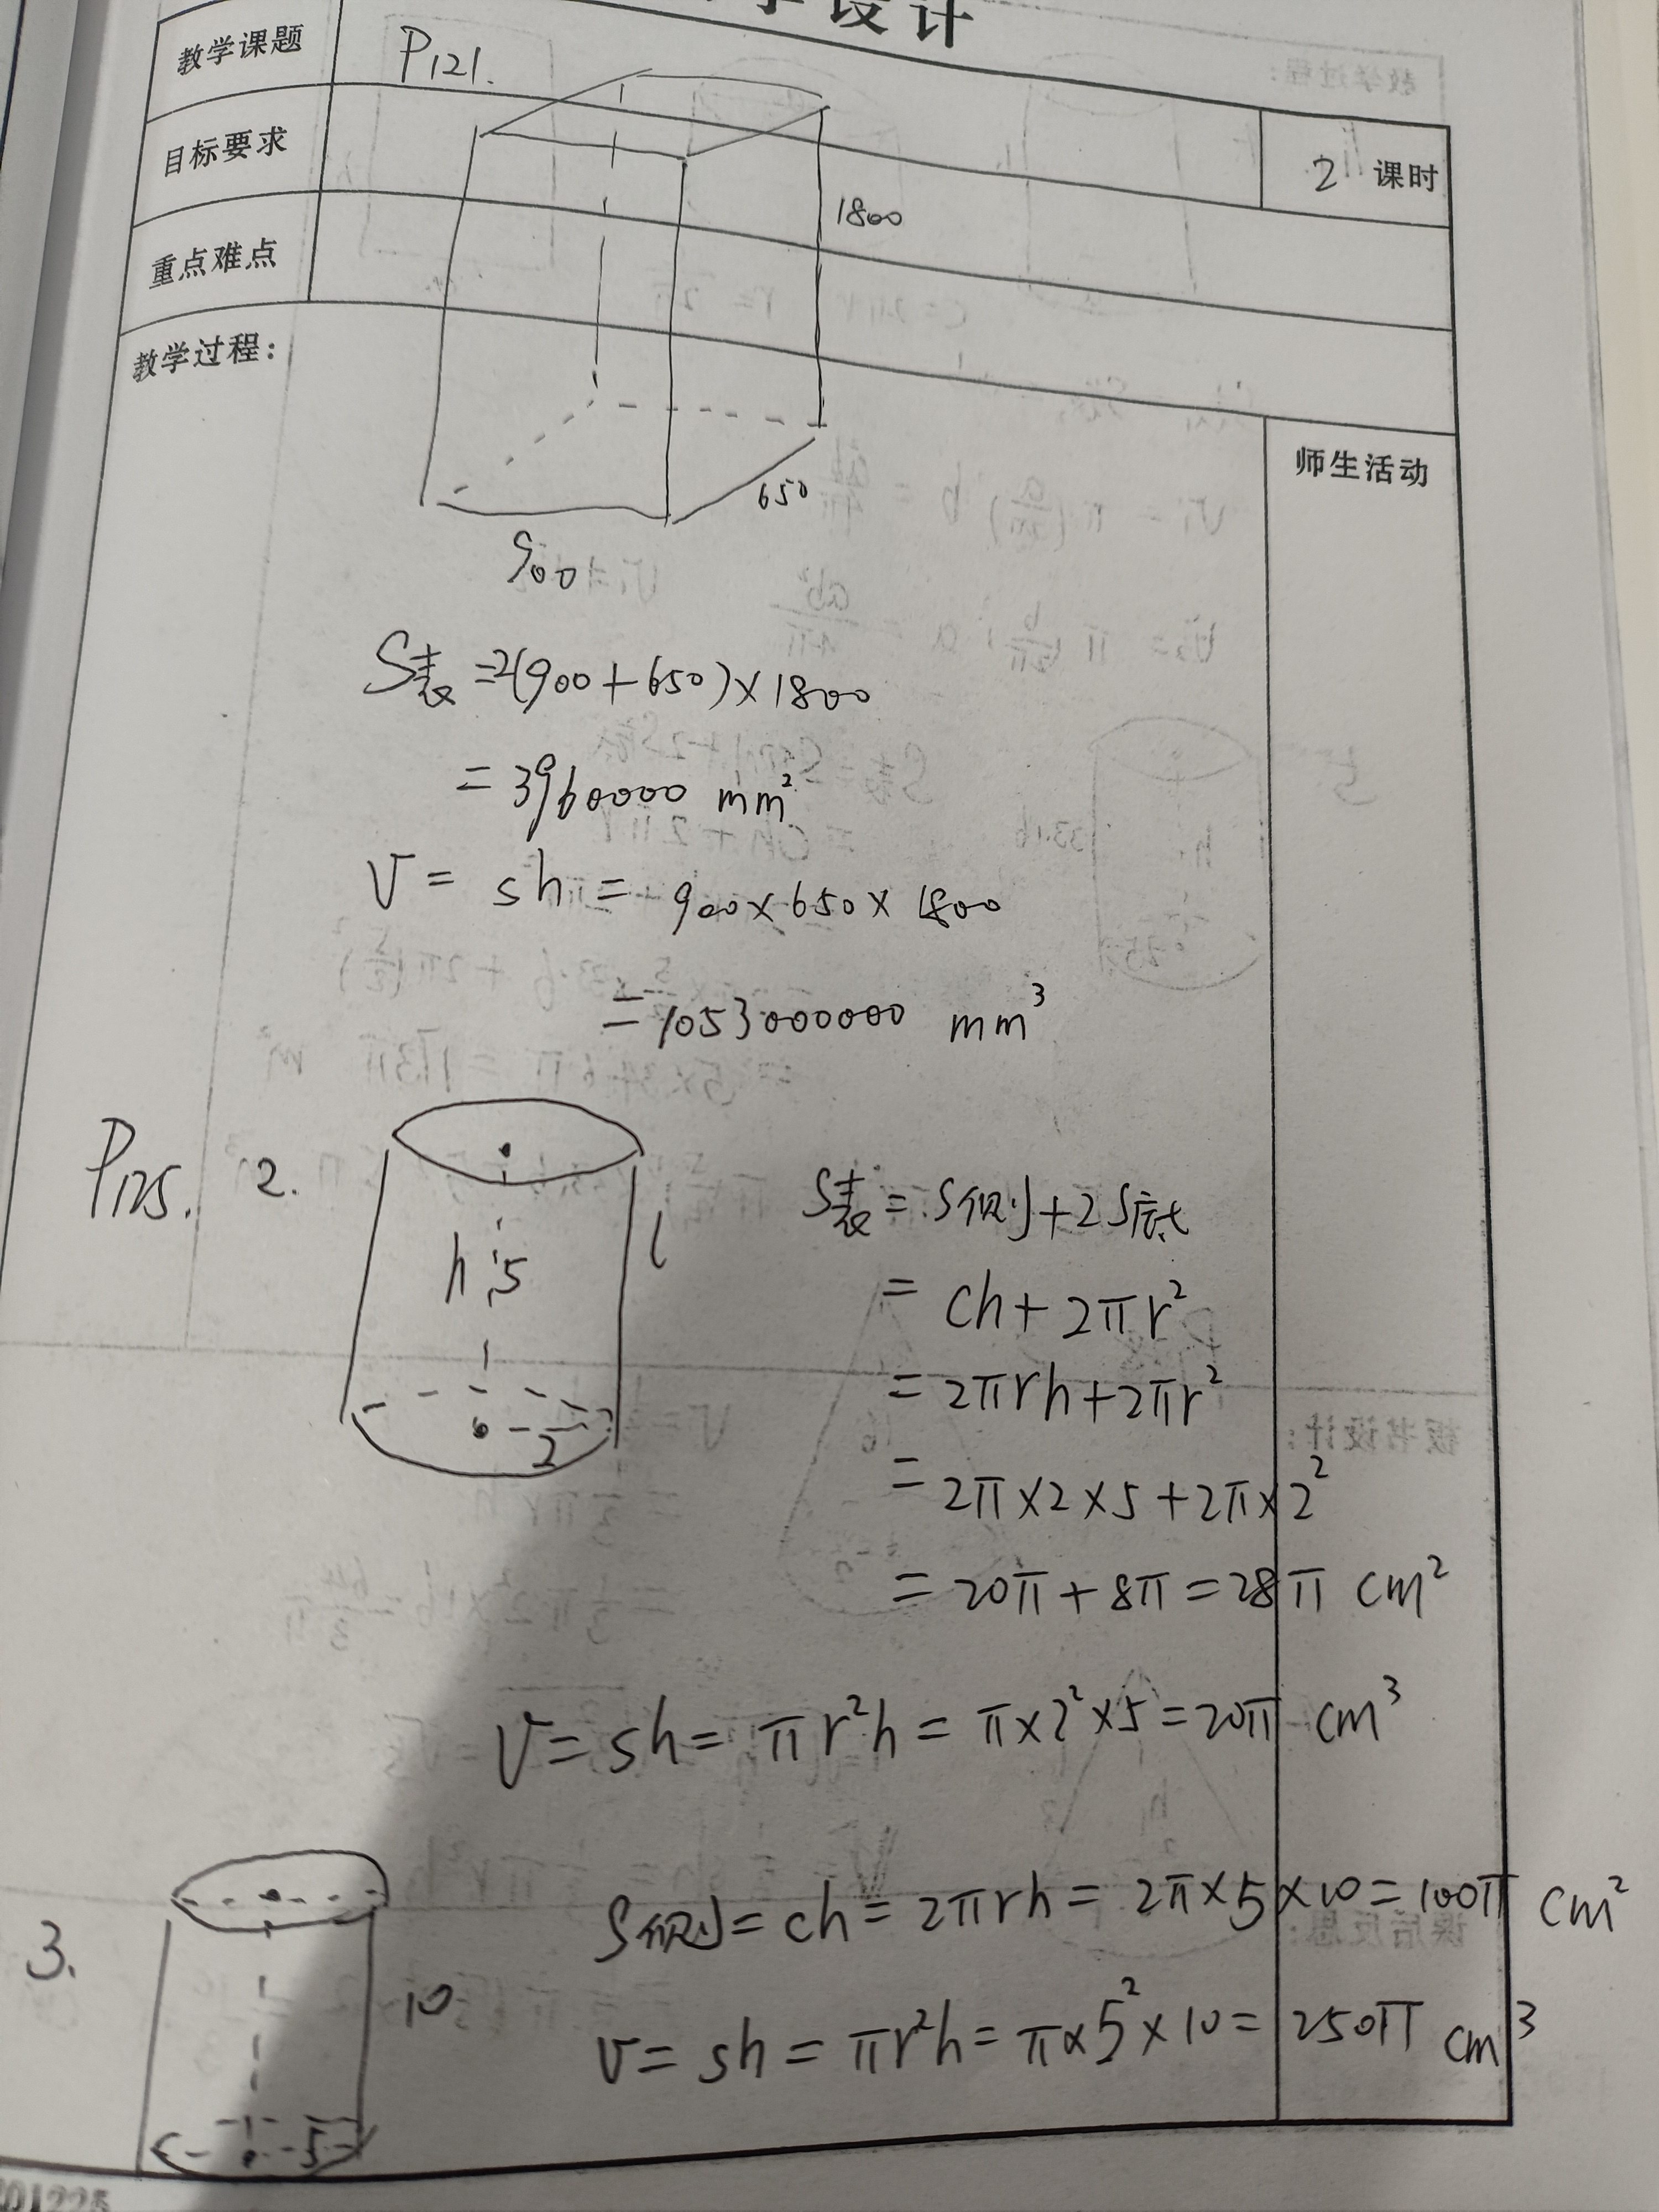 学设计
教学课题
P121.
目标要求
2 课时
重点难点
1800
教学过程:
师生活动
650
900
S表=2(900+650)×1800
=3960000 mm²
V= sh = 900×650×1800
=1053000000 mm³
P125. 2.
h 5
l
2
S表=S侧+2S底
= ch+2πr²
=2πrh+2πr²
= 2π×2×5+2π×2²
= 20π+8π=28π cm²
V=sh=πr²h=π×2²×5=20π cm³
3.
10
5
S侧=ch=2πrh= 2π×5×10=100π cm²
V= sh =πr²h=π×5²×10= 250π cm³
板书设计:
课后反思:
201225